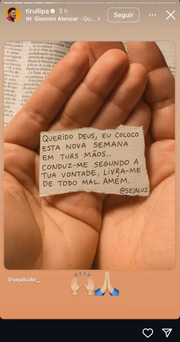 tirullipa 3 h
Giannini Alencar · Qu...
Seguir
QUERIDO DEUS, EU COLOCO
ESTA NOVA SEMANA
EM TUAS MÃOS...
CONDUZ-ME SEGUNDO A
TUA VONTADE, LIVRA-ME
DE TODO MAL. AMÉM.
@SEJALUZ
@sejaluzbr_